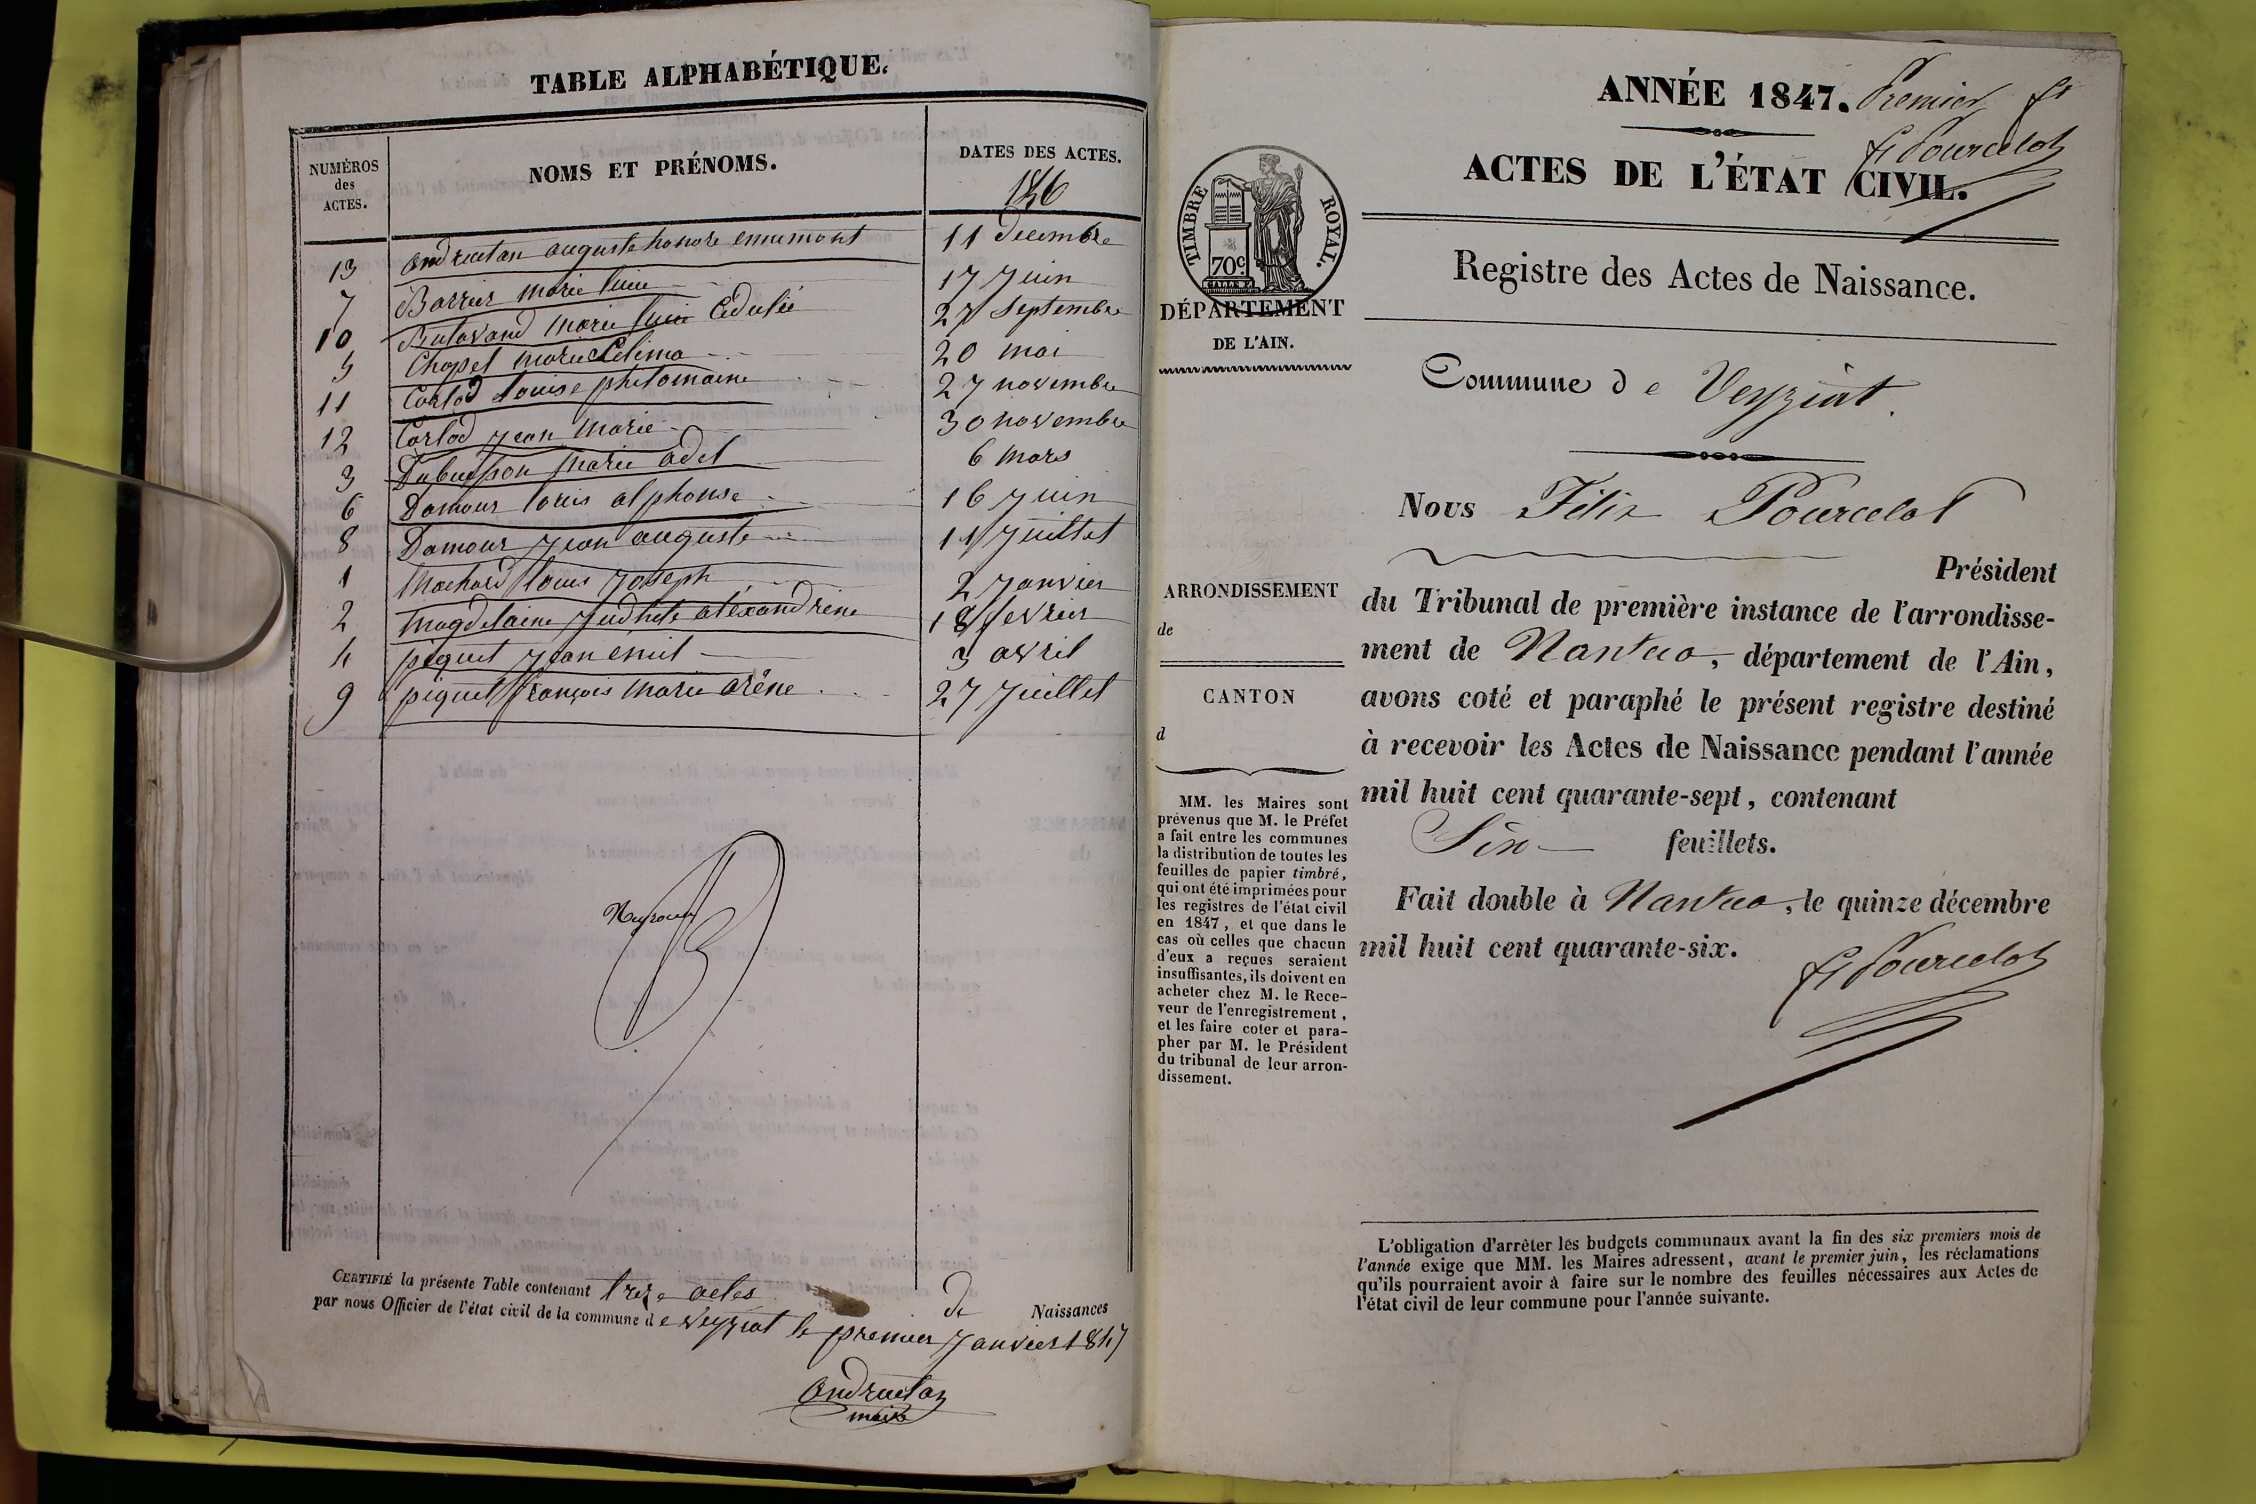 TABLE ALPHABÉTIQUE.
NUMÉROS des ACTES. NOMS ET PRÉNOMS. DATES DES ACTES.
1846
13 andruetan auguste honoré 11 decembre
7 Barrier marie 17 Juin
10 marie 27 septembre
5 Chapel marie Celima 20 mai
11 Carlod Louise philomaine 27 novembre
12 Carlod Jean Marie 30 novembre
3 Dubuisson Marie adel 6 mars
6 Damour louis alphonse 16 Juin
8 Damour Jean auguste 11 Juillet
1 Machard louis Joseph 2 Janvier
2 Magdelaine alexandrine 18 fevrier
4 piquet Jean emil 3 avril
9 piquet françois Marie arêne 27 Juillet
CERTIFIÉ la présente Table contenant treize actes de Naissances
par nous Officier de l'état civil de la commune de Veyziat le premier Janvier 1847
andruetan
maire
ANNÉE 1847. Premier ft
F Pourcelot
ACTES DE L'ÉTAT CIVIL.
TIMBRE ROYAL.
70c.
DÉPARTEMENT
DE L'AIN.
ARRONDISSEMENT
de
CANTON
d
MM. les Maires sont
prévenus que M. le Préfet
a fait entre les communes
la distribution de toutes les
feuilles de papier timbré,
qui ont été imprimées pour
les registres de l'état civil
en 1847, et que dans le
cas où celles que chacun
d'eux a reçues seraient
insuffisantes, ils doivent en
acheter chez M. le Rece-
veur de l'enregistrement,
et les faire coter et para-
pher par M. le Président
du tribunal de leur arron-
dissement.
Registre des Actes de Naissance.
Commune de Veyziat.
Nous Félix Pourcelot
Président
du Tribunal de première instance de l'arrondisse-
ment de Nantua, département de l'Ain,
avons coté et paraphé le présent registre destiné
à recevoir les Actes de Naissance pendant l'année
mil huit cent quarante-sept, contenant
Six feuillets.
Fait double à Nantua, le quinze décembre
mil huit cent quarante-six.
F Pourcelot
L'obligation d'arrêter les budgets communaux avant la fin des six premiers mois de
l'année exige que MM. les Maires adressent, avant le premier juin, les réclamations
qu'ils pourraient avoir à faire sur le nombre des feuilles nécessaires aux Actes de
l'état civil de leur commune pour l'année suivante.